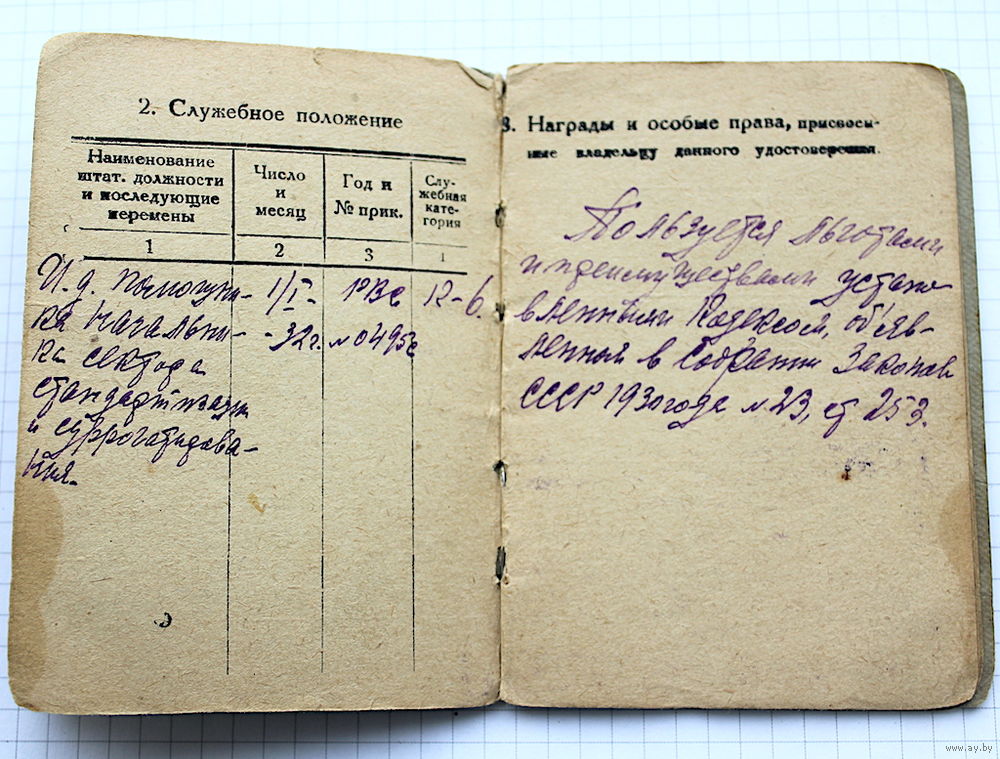 2. Служебное положение
Наименование
штат. должности
и последующие
перемены
Число
и
месяц
Год и
№ прик.
Слу-
жебная
кате-
гория
1
2
3
И. д. помощни-
ка начальни-
ка сектора
стандартизации
и суррогатирова-
ния.
1/I-
-32г.
РВС
№ 0495
12-6.
3. Награды и особые права, присвоен-
ные владельцу данного удостоверения.
Пользуется льготами
и преимуществами устано-
вленными Кодексом, об'яв-
ленном в Собрании Законов
СССР 1930 года № 23, ст. 253.
www.ay.by